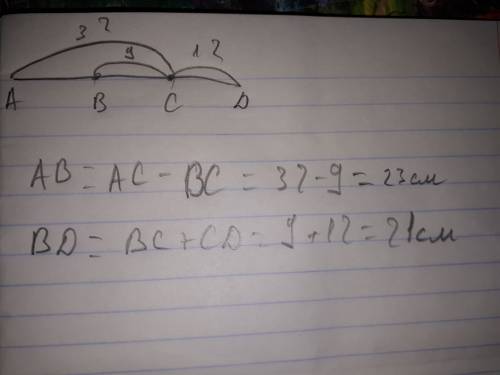 32
9 12
A B C D
AB = AC - BC = 32 - 9 = 23см
BD = BC + CD = 9 + 12 = 21см